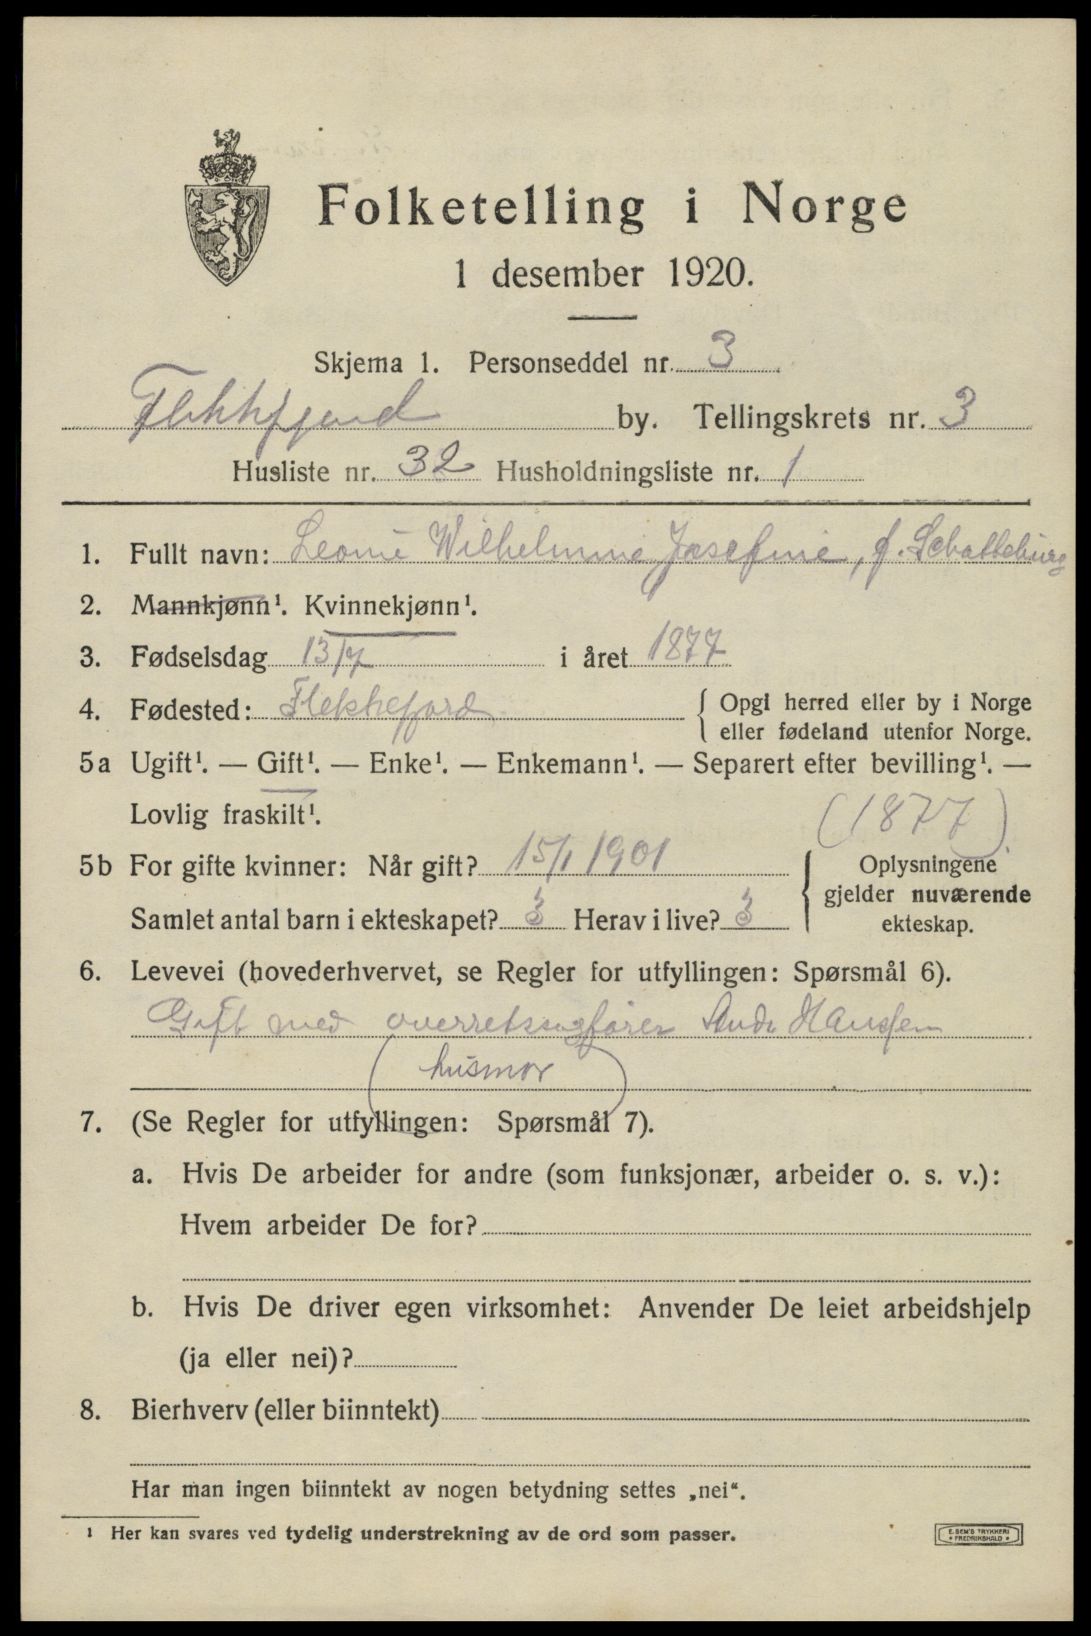 Folketelling i Norge
1 desember 1920.
Skjema 1. Personseddel nr. 3
Flekkefjord by. Tellingskrets nr. 3
Husliste nr. 32 Husholdningsliste nr. 1
1. Fullt navn: Leonie Wilhelmine Josefine, f.
2. Mannkjønn¹. Kvinnekjønn¹.
3. Fødselsdag 13/7 i året 1877
4. Fødested: Flekkefjord { Opgi herred eller by i Norge
eller fødeland utenfor Norge.
5a Ugift¹. — Gift¹. — Enke¹. — Enkemann¹. — Separert efter bevilling¹. —
Lovlig fraskilt¹. (1877)
5b For gifte kvinner: Når gift? 15/1 1901 { Oplysningene
gjelder nuværende
Samlet antal barn i ekteskapet? 3 Herav i live? 3 ekteskap.
6. Levevei (hovederhvervet, se Regler for utfyllingen: Spørsmål 6).
Gift med overretssagfører Hanssen
(husmor)
7. (Se Regler for utfyllingen: Spørsmål 7).
a. Hvis De arbeider for andre (som funksjonær, arbeider o. s. v.):
Hvem arbeider De for?
b. Hvis De driver egen virksomhet: Anvender De leiet arbeidshjelp
(ja eller nei)?
8. Bierhverv (eller biinntekt)
Har man ingen biinntekt av nogen betydning settes „nei“.
¹ Her kan svares ved tydelig understrekning av de ord som passer.
E. SEM'S TRYKKERI
FREDRIKSHALD